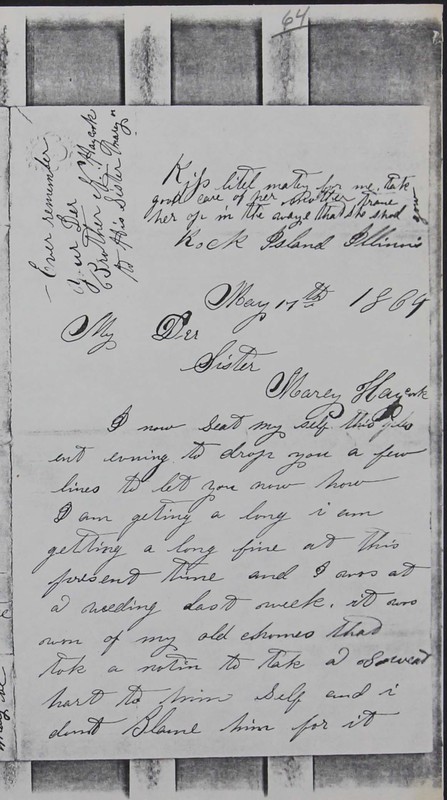 64
Ever remember
your Der
Brother N Haycock
to His Sister Marey
Kiss litel matty for me. tak
good care of her Brother trane
her op in the waye that she shod
gow
Rock Island Illinois
May 17th 1869
My Der
Sister
Marey Haycock
I now seat my self this
ent evning to drop you a few
lines to let you now how
I am geting a long i am
getting a long fine at this
present time and I was at
a weeding last week. it was
won of my old chomes that
tok a notin to tak a sweat
hart to him self and i
dont Blame him for it